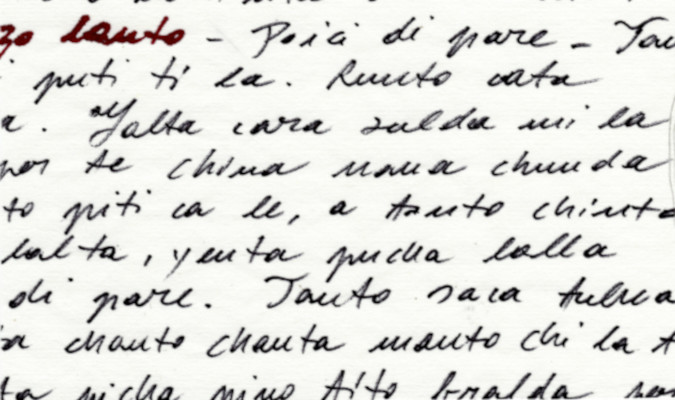 lanto - Poici di pare - Tan
puti ti la. Runto cata
Yalta cara zulda mi la
por te china nana chunda
to piti ca le, a tanto chinta
lalta, yenta pucha lalla
di pare. Tanto saca tulica
chanto chanta manto chi la t
ta picha pino tito bralda